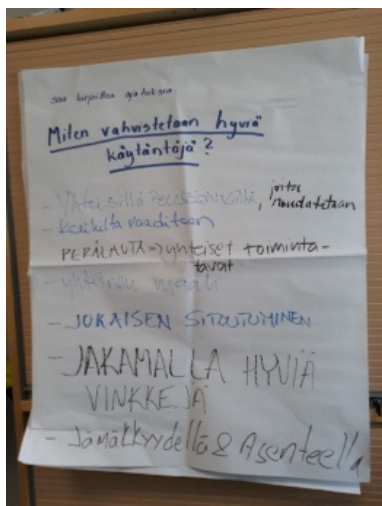 saa kirjoittaa ajatuksia
Miten vahvistetaan hyviä
käytäntöjä?
- Yhteisillä Pelisäännöillä, joita
noudatetaan
- Kaikilta vaaditaan
PERÄLAUTA => yhteiset toiminta-
tavat
- yhteinen maali
- JOKAISEN SITOUTUMINEN
- JAKAMALLA HYVIÄ
VINKKEJÄ
- Jämäkkyydellä & Asenteella